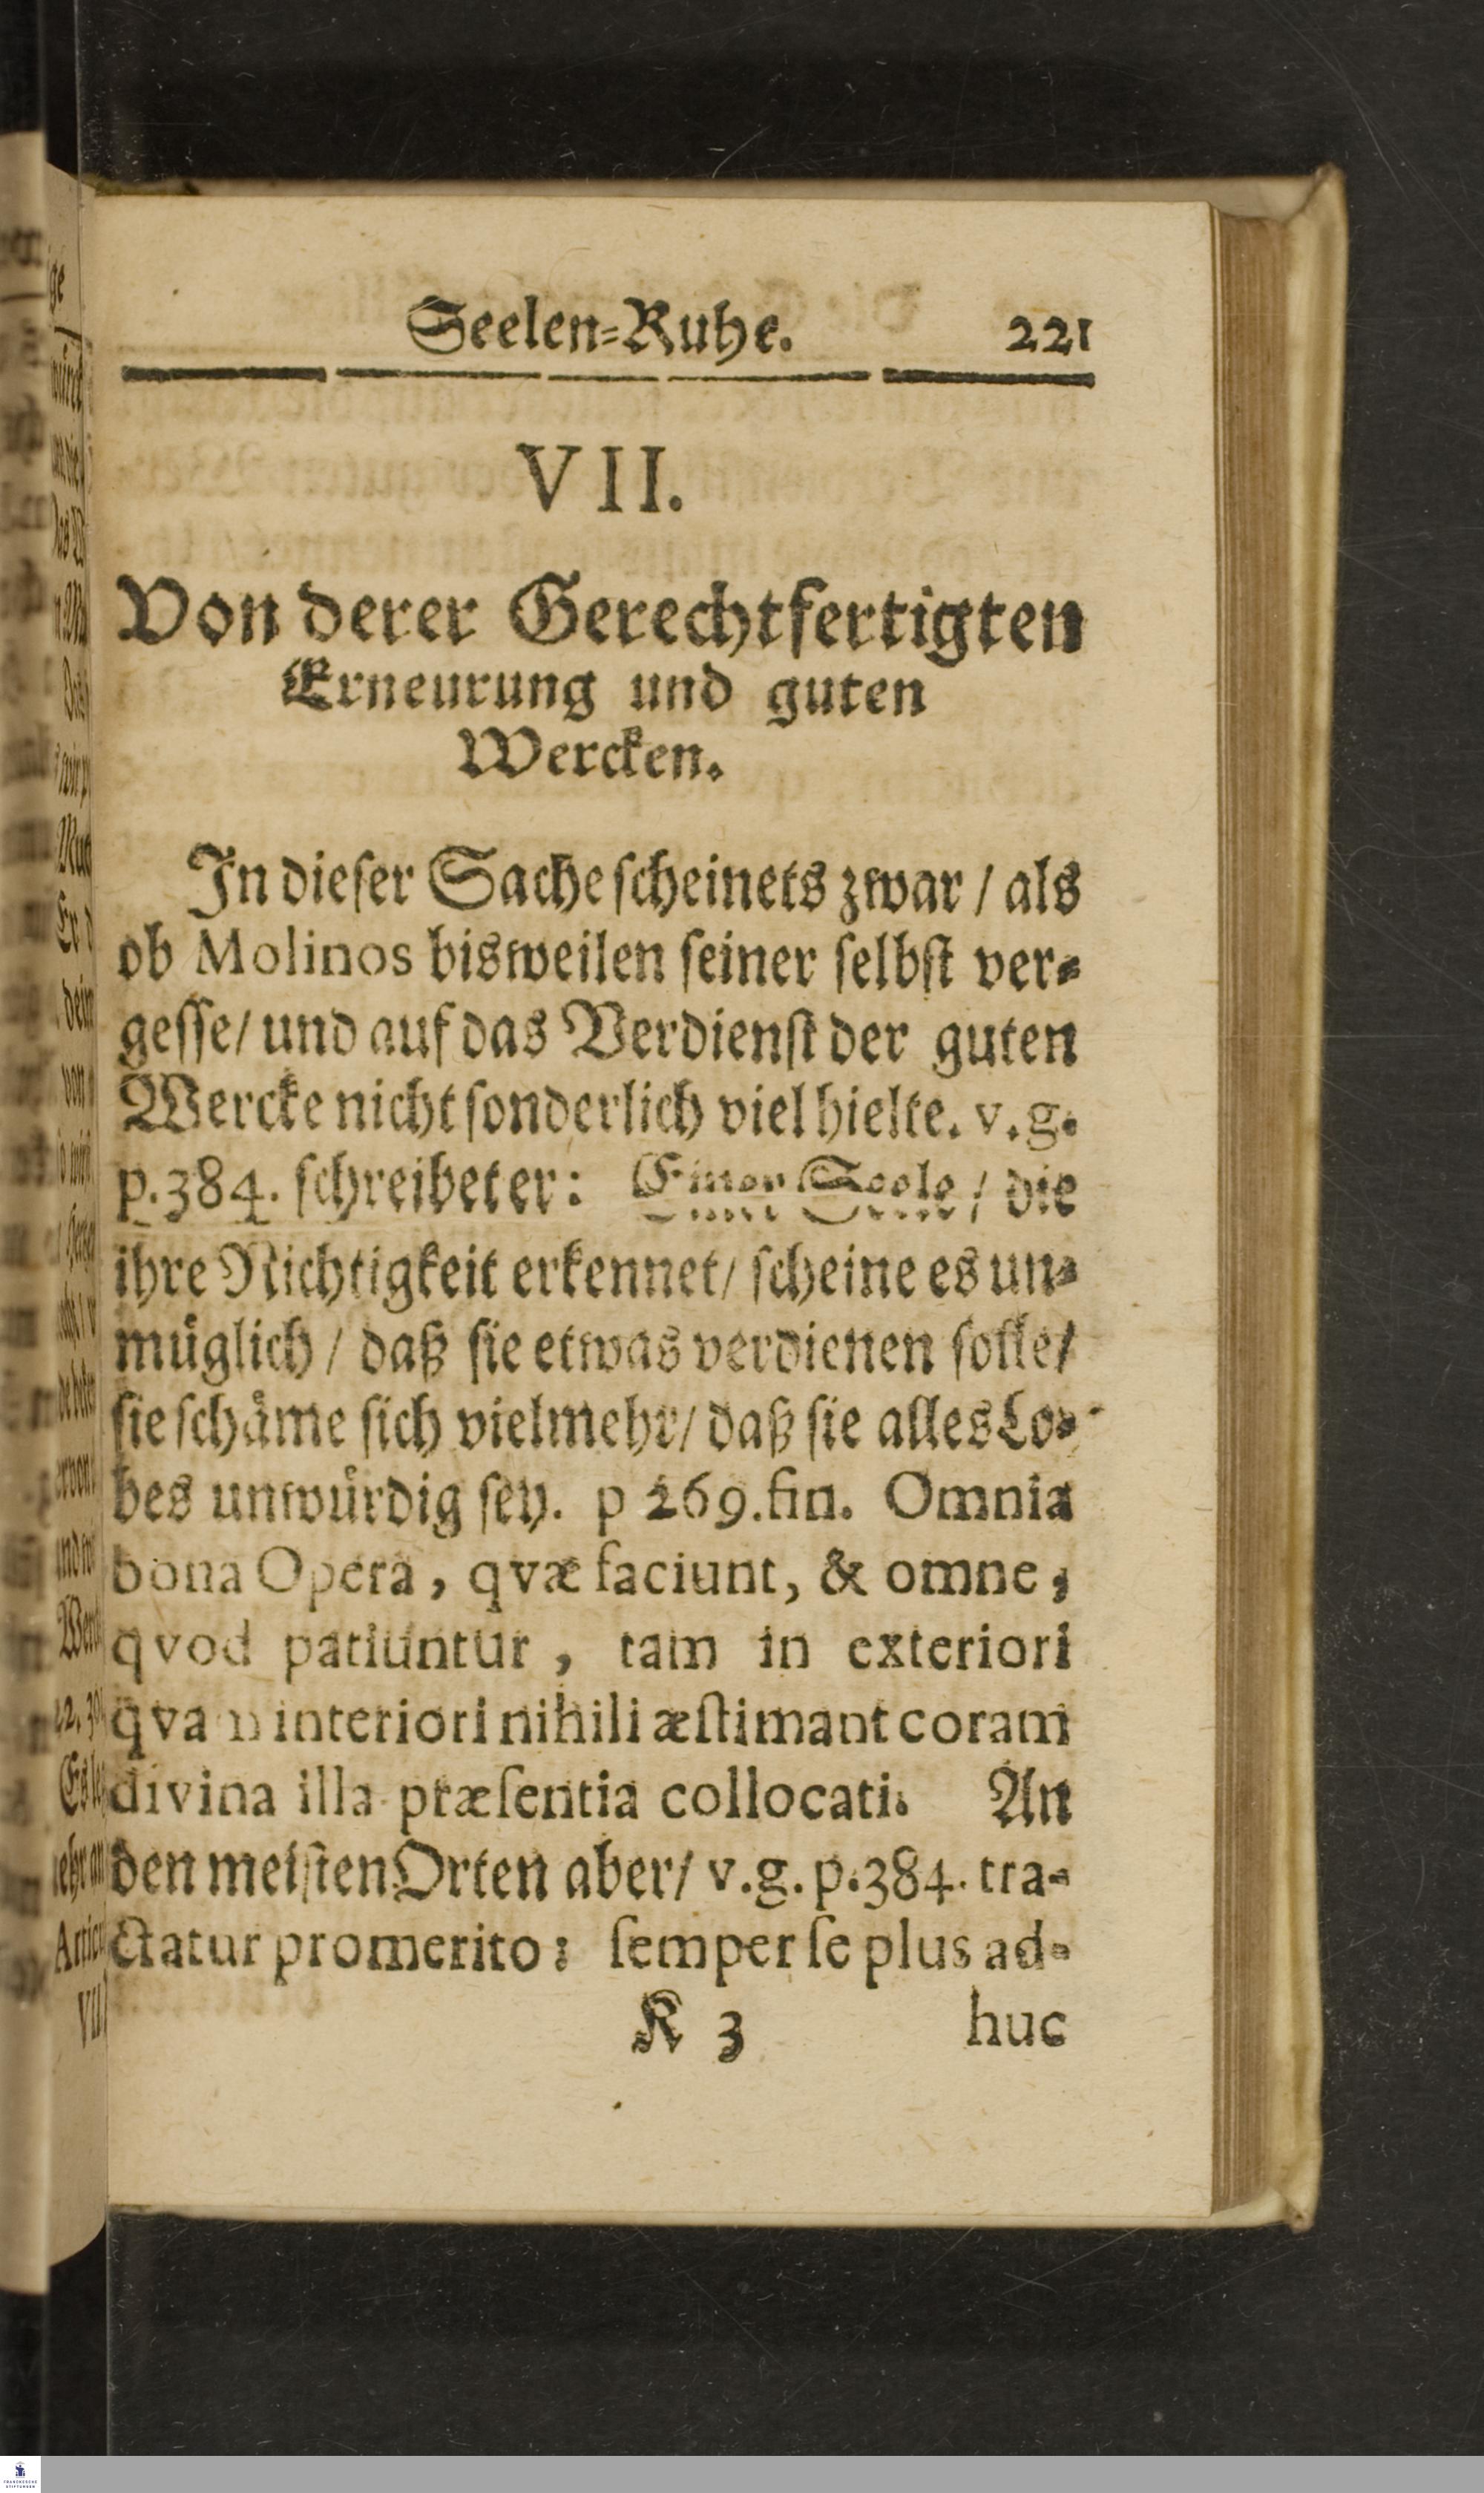 Seelen-Ruhe. 221
VII.
Von derer Gerechtfertigten
Erneurung und guten
Wercken.
In dieser Sache scheinets zwar / als
ob Molinos bisweilen seiner selbst ver-
gesse / und auf das Verdienst der guten
Wercke nicht sonderlich viel hielte. v. g.
p. 384. schreibet er: Einer Seele / die
ihre Nichtigkeit erkennet / scheine es un-
müglich / daß sie etwas verdienen solle /
sie schäme sich vielmehr / daß sie alles Lo-
bes unwürdig sey. p 269. fin. Omnia
bona Opera, qvæ faciunt, & omne,
qvod patiuntur, tam in exteriori
qvam interiori nihili æstimant coram
divina illa præsentia collocati. An
den meisten Orten aber / v. g. p. 384. tra-
ctatur promerito: semper se plus ad-
K 3 huc